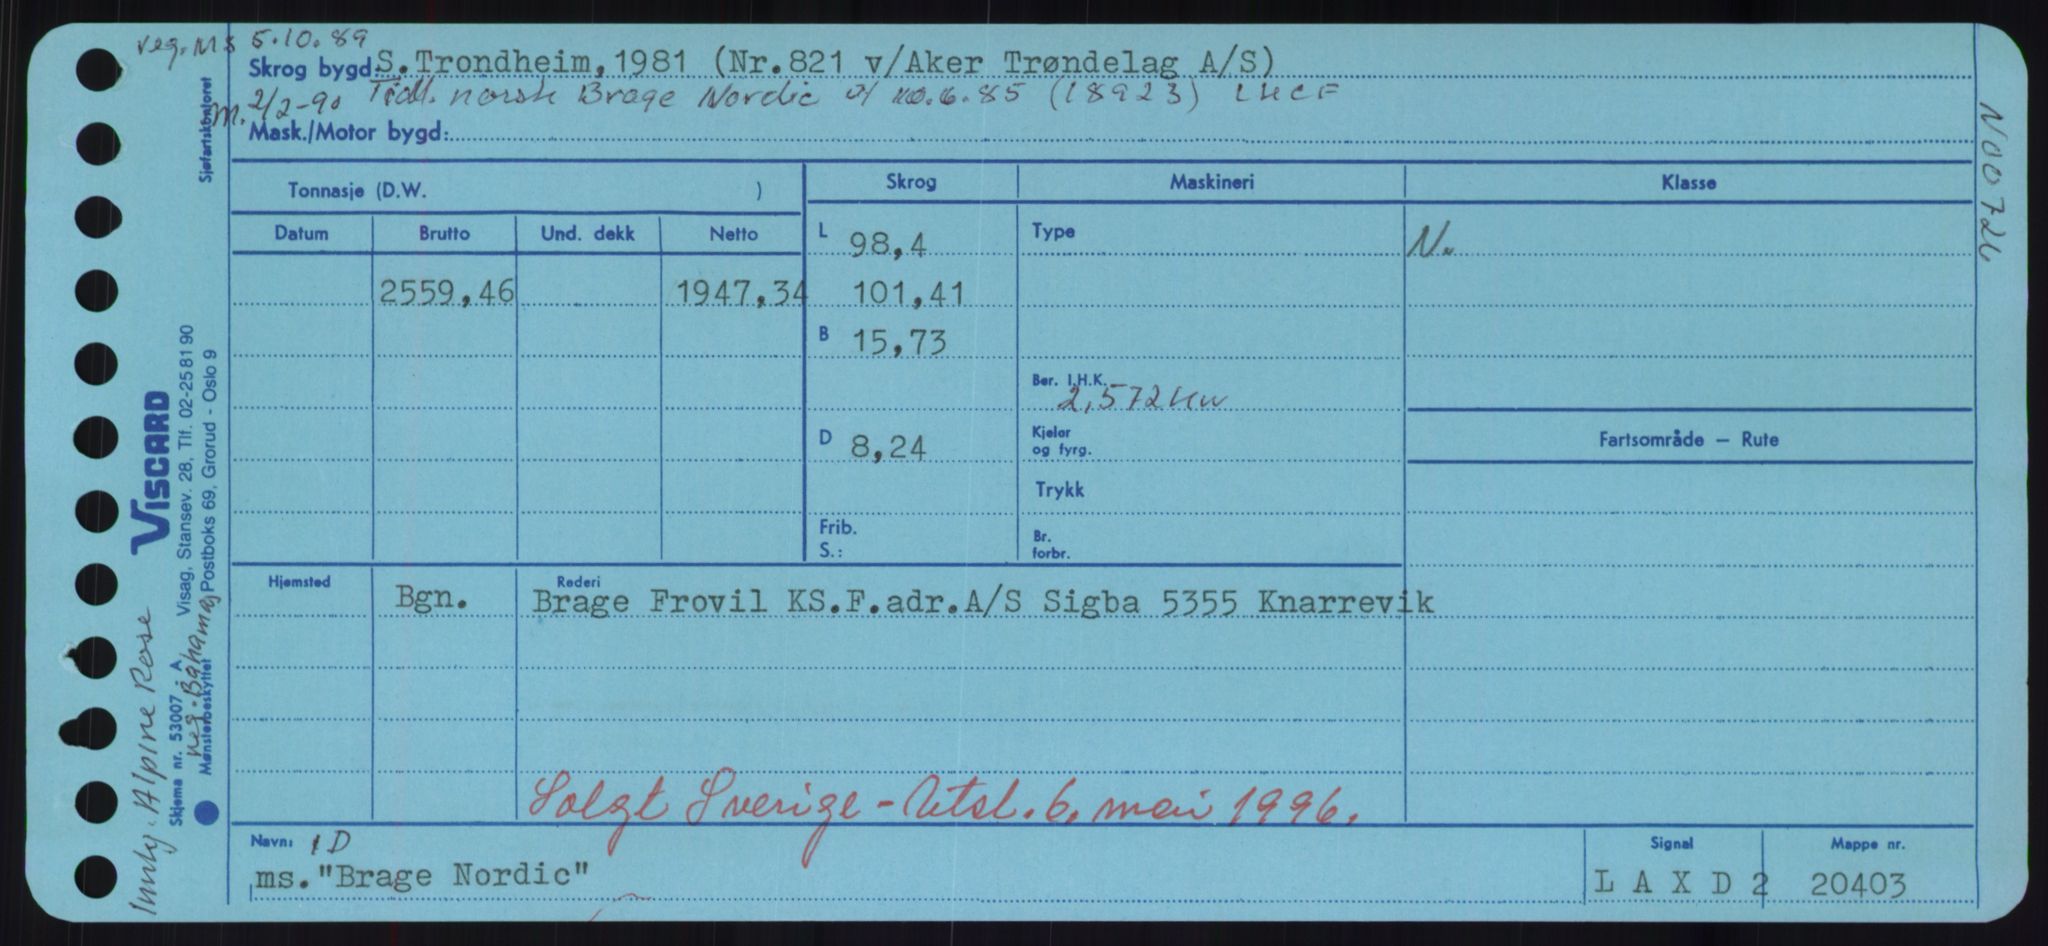 veg. Ms 5.10.89
Skrog bygd: S.Trondheim, 1981 (Nr.821 v/Aker Trøndelag A/S)
m. 2/2-90 Tidl. norsk Brage Nordic (18923) LHCF
Mask./Motor bygd:
Tonnasje (D.W. )
Skrog
Maskineri
Klasse
Datum
Brutto
Und. dekk
Netto
L 98,4
Type
N.
2559,46
1947,34
101,41
B 15,73
Ber. I.H.K.
2,572 Kw
D 8,24
Kjeler
og fyrg.
Fartsområde – Rute
Trykk
Frib.
S.:
Br.
forbr.
Hjemsted
Bgn.
Rederi
Brage Frovil KS.F.adr.A/S Sigba 5355 Knarrevik
Solgt Sverige - Utsl. 6. mai 1996.
Navn: 1D
ms."Brage Nordic"
Signal
L A X D 2
Mappe nr.
20403
Sjøfartskontoret
VISCARD
Visag, Stansev. 28, Tlf. 02-25 81 90
Postboks 69, Grorud - Oslo 9
Skjema nr. 53007 A
Mønsterbeskyttet
Alpine Rose
reg. Bahamas